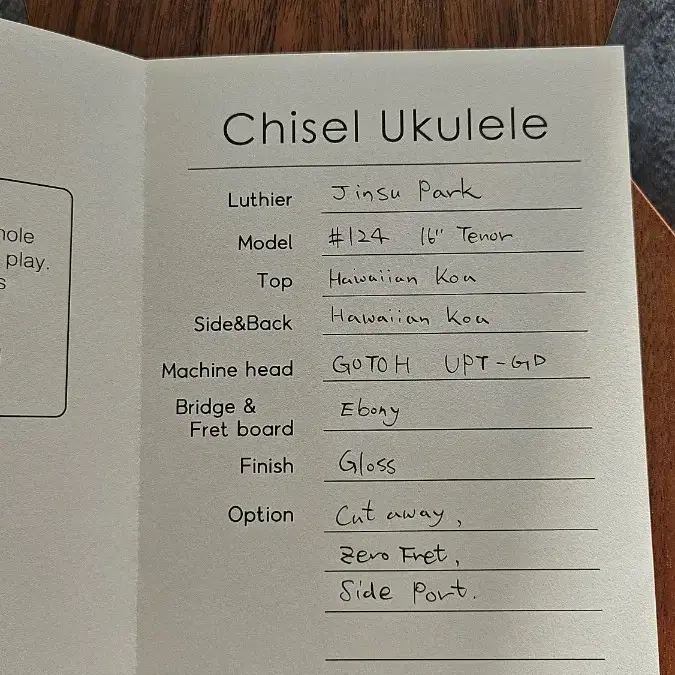 hole
play.
s
Chisel Ukulele
Luthier Jinsu Park
Model #124 16" Tenor
Top Hawaiian Koa
Side&Back Hawaiian Koa
Machine head GOTOH UPT-GD
Bridge &
Fret board Ebony
Finish Gloss
Option Cut away,
Zero Fret,
Side Port.